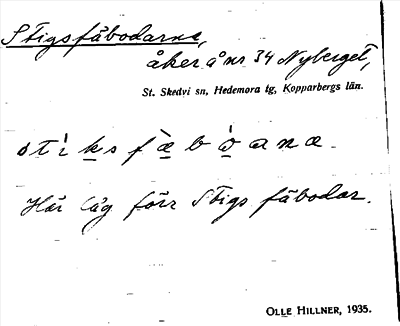 Stigsfäbodarne,
åker å nr 34 Nyberget,
St. Skedvi sn, Hedemora tg, Kopparbergs län.
Här låg förr Stigs fäbodar.
OLLE HILLNER, 1935.